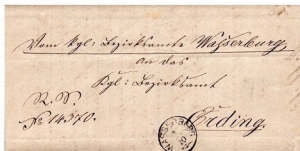 Vom Kgl: Bezirksamte Wasserburg,
an das
Kgl: Bezirksamt
R. S.
No 14370.
Erding.
WASSERBURG